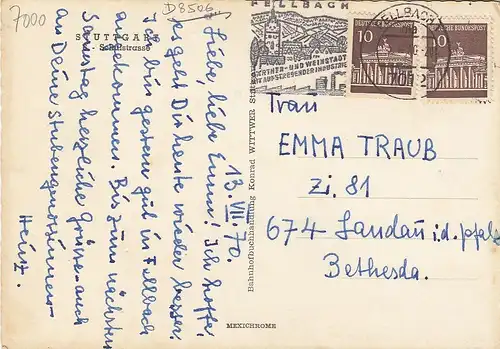 7000
D8506
STUTTGART
Schulstrasse
13. VII. 70.
Liebe, liebe Emma! Ich hoffe,
es geht Dir heute wieder besser.
Ich bin gestern gut in Fellbach
angekommen. Bis zum nächsten
Samstag herzliche Grüsse auch
an Deine Stubengenossinnen
Heinz.
Bahnhofbuchhandlung Konrad WITTWER
MEXICHROME
FELLBACH
GÄRTNER- UND WEINSTADT
MIT AUFSTREBENDER INDUSTRIE
FELLBACH
7012
DEUTSCHE BUNDESPOST
10
DEUTSCHE BUNDESPOST
10
Frau
EMMA TRAUB
Zi. 81
674 Landau i.d. Pfalz
Bethesda.